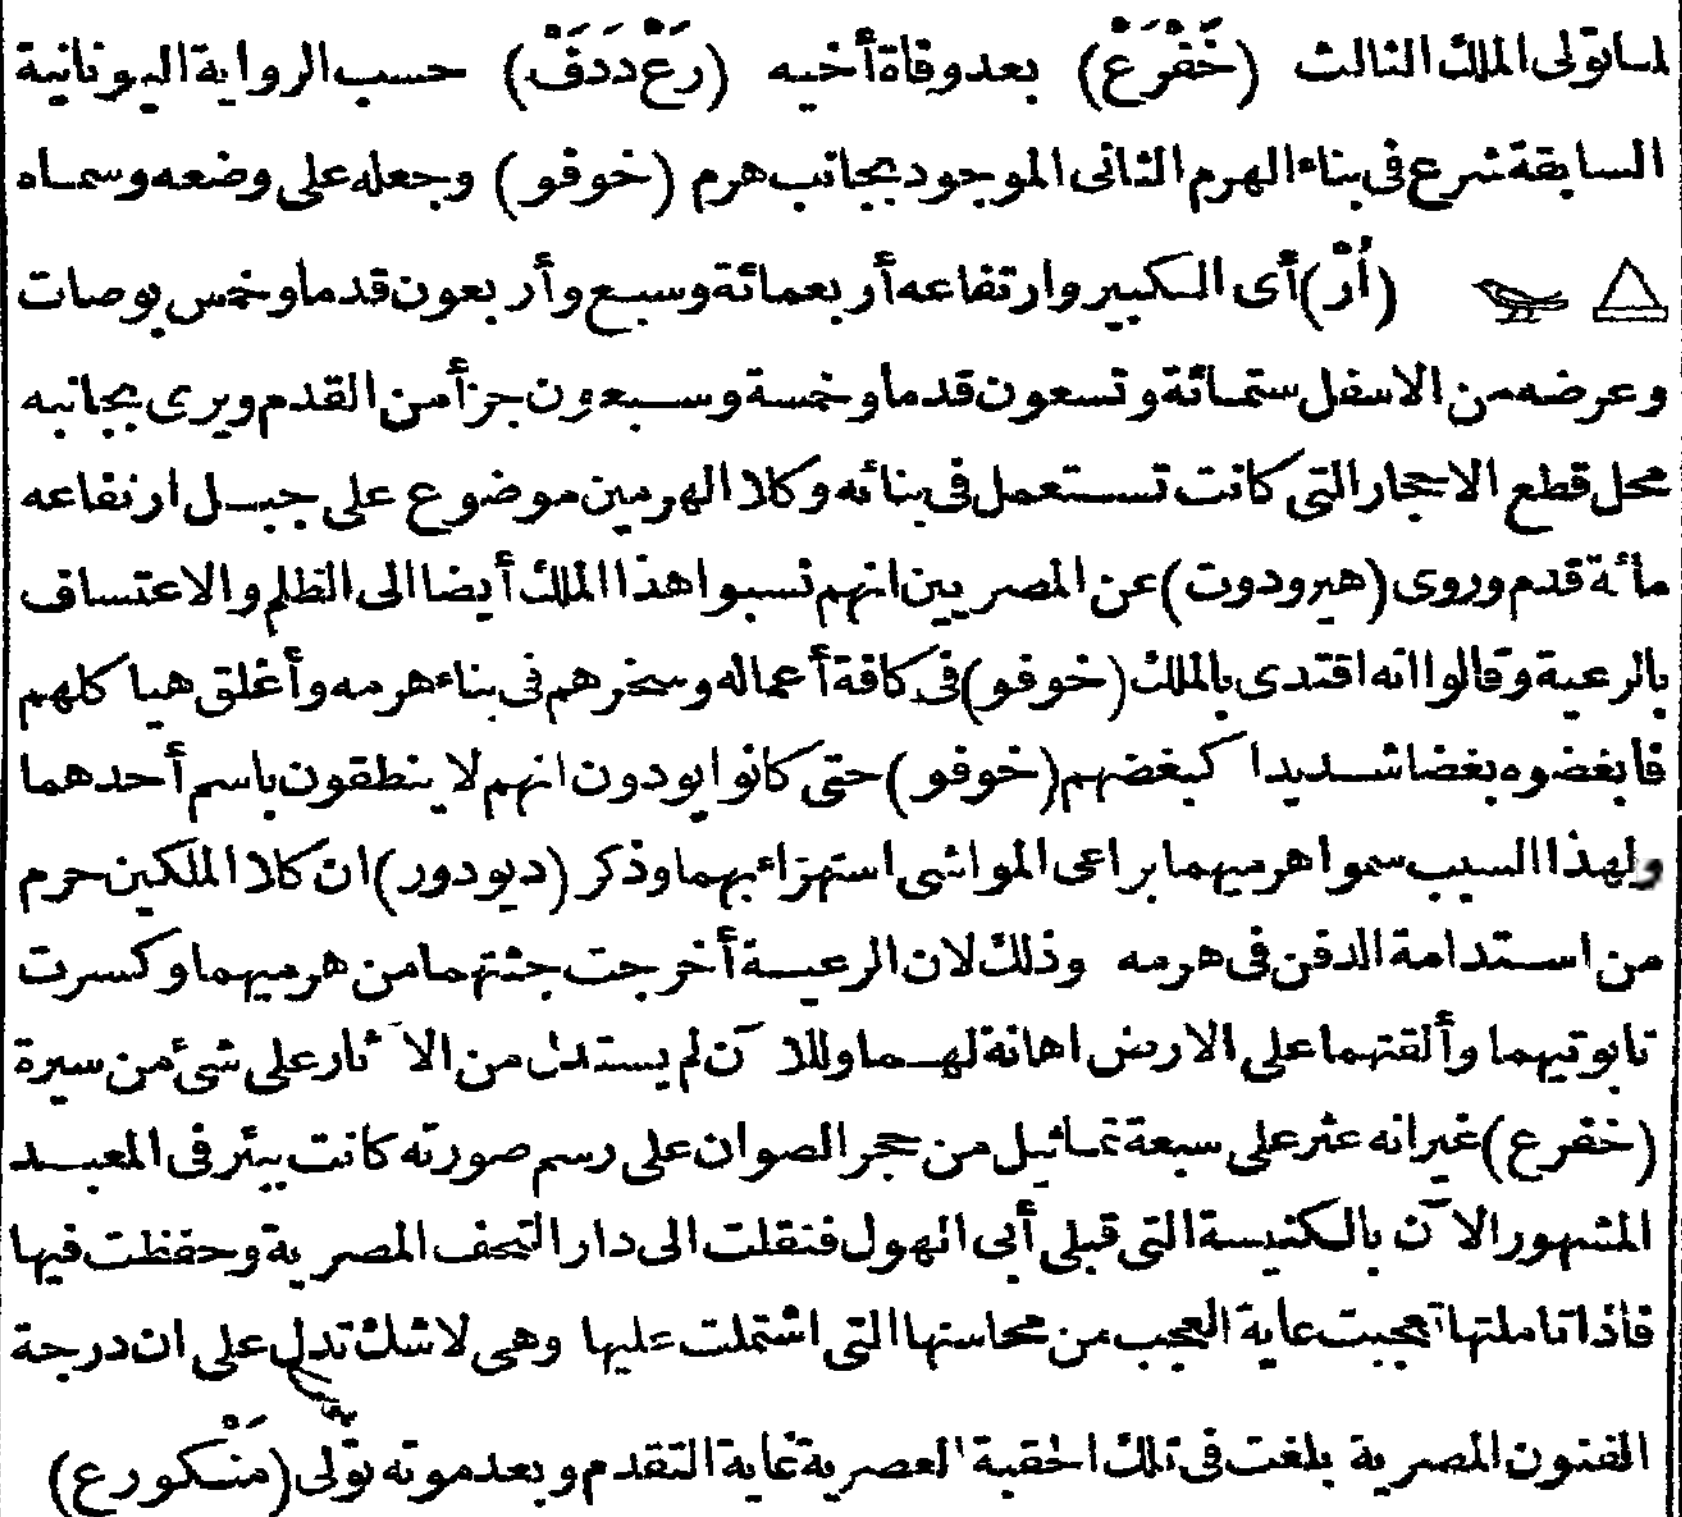 لما تولى الملك الثالث (خَفْرَعْ) بعد وفاة أخيه (رَعْ دَدَفْ) حسب الرواية اليونانية
السابقة شرع فى بناء الهرم الثانى الموجود بجانب هرم (خوفو) وجعله على وضعه وسماه
(أُرْ) أى الكبير وارتفاعه أربعمائة وسبع وأربعون قدما وخمس بوصات
وعرضه من الاسفل ستمائة وتسعون قدما وخمسة وسبعون جزأ من القدم ويرى بجانبه
محل قطع الاحجار التى كانت تستعمل فى بنائه وكلا الهرمين موضوع على جبل ارتفاعه
مائة قدم وروى (هيرودوت) عن المصريين انهم نسبوا هذا الملك أيضا الى الظلم والاعتساف
بالرعية وقالوا انه اقتدى بالملك (خوفو) فى كافة أعماله وسخرهم فى بناء هرمه وأغلق هياكلهم
فابغضوه بغضا شديدا كبغضهم (خوفو) حتى كانوا يودون انهم لا ينطقون باسم أحدهما
ولهذا السبب سموا هرميهما براعى المواشى استهزاء بهما وذكر (ديودور) ان كلا الملكين حرم
من استدامة الدفن فى هرمه وذلك لان الرعية أخرجت جثتهما من هرميهما وكسرت
تابوتيهما وألقتهما على الارض اهانة لهما وللآن لم يستدل من الآثار على شئ من سيرة
(خفرع) غير انه عثر على سبعة تماثيل من حجر الصوان على رسم صورته كانت ببئر فى المعبد
المشهور الآن بالكنيسة التى قبلى أبى الهول فنقلت الى دار التحف المصرية وحفظت فيها
فاذا تاملتها تعجبت غاية العجب من محاسنها التى اشتملت عليها وهى لاشك تدل على ان درجة
الفنون المصرية بلغت فى تلك الحقبة العصرية غاية التقدم وبعد موته تولى (مَنْكورع)